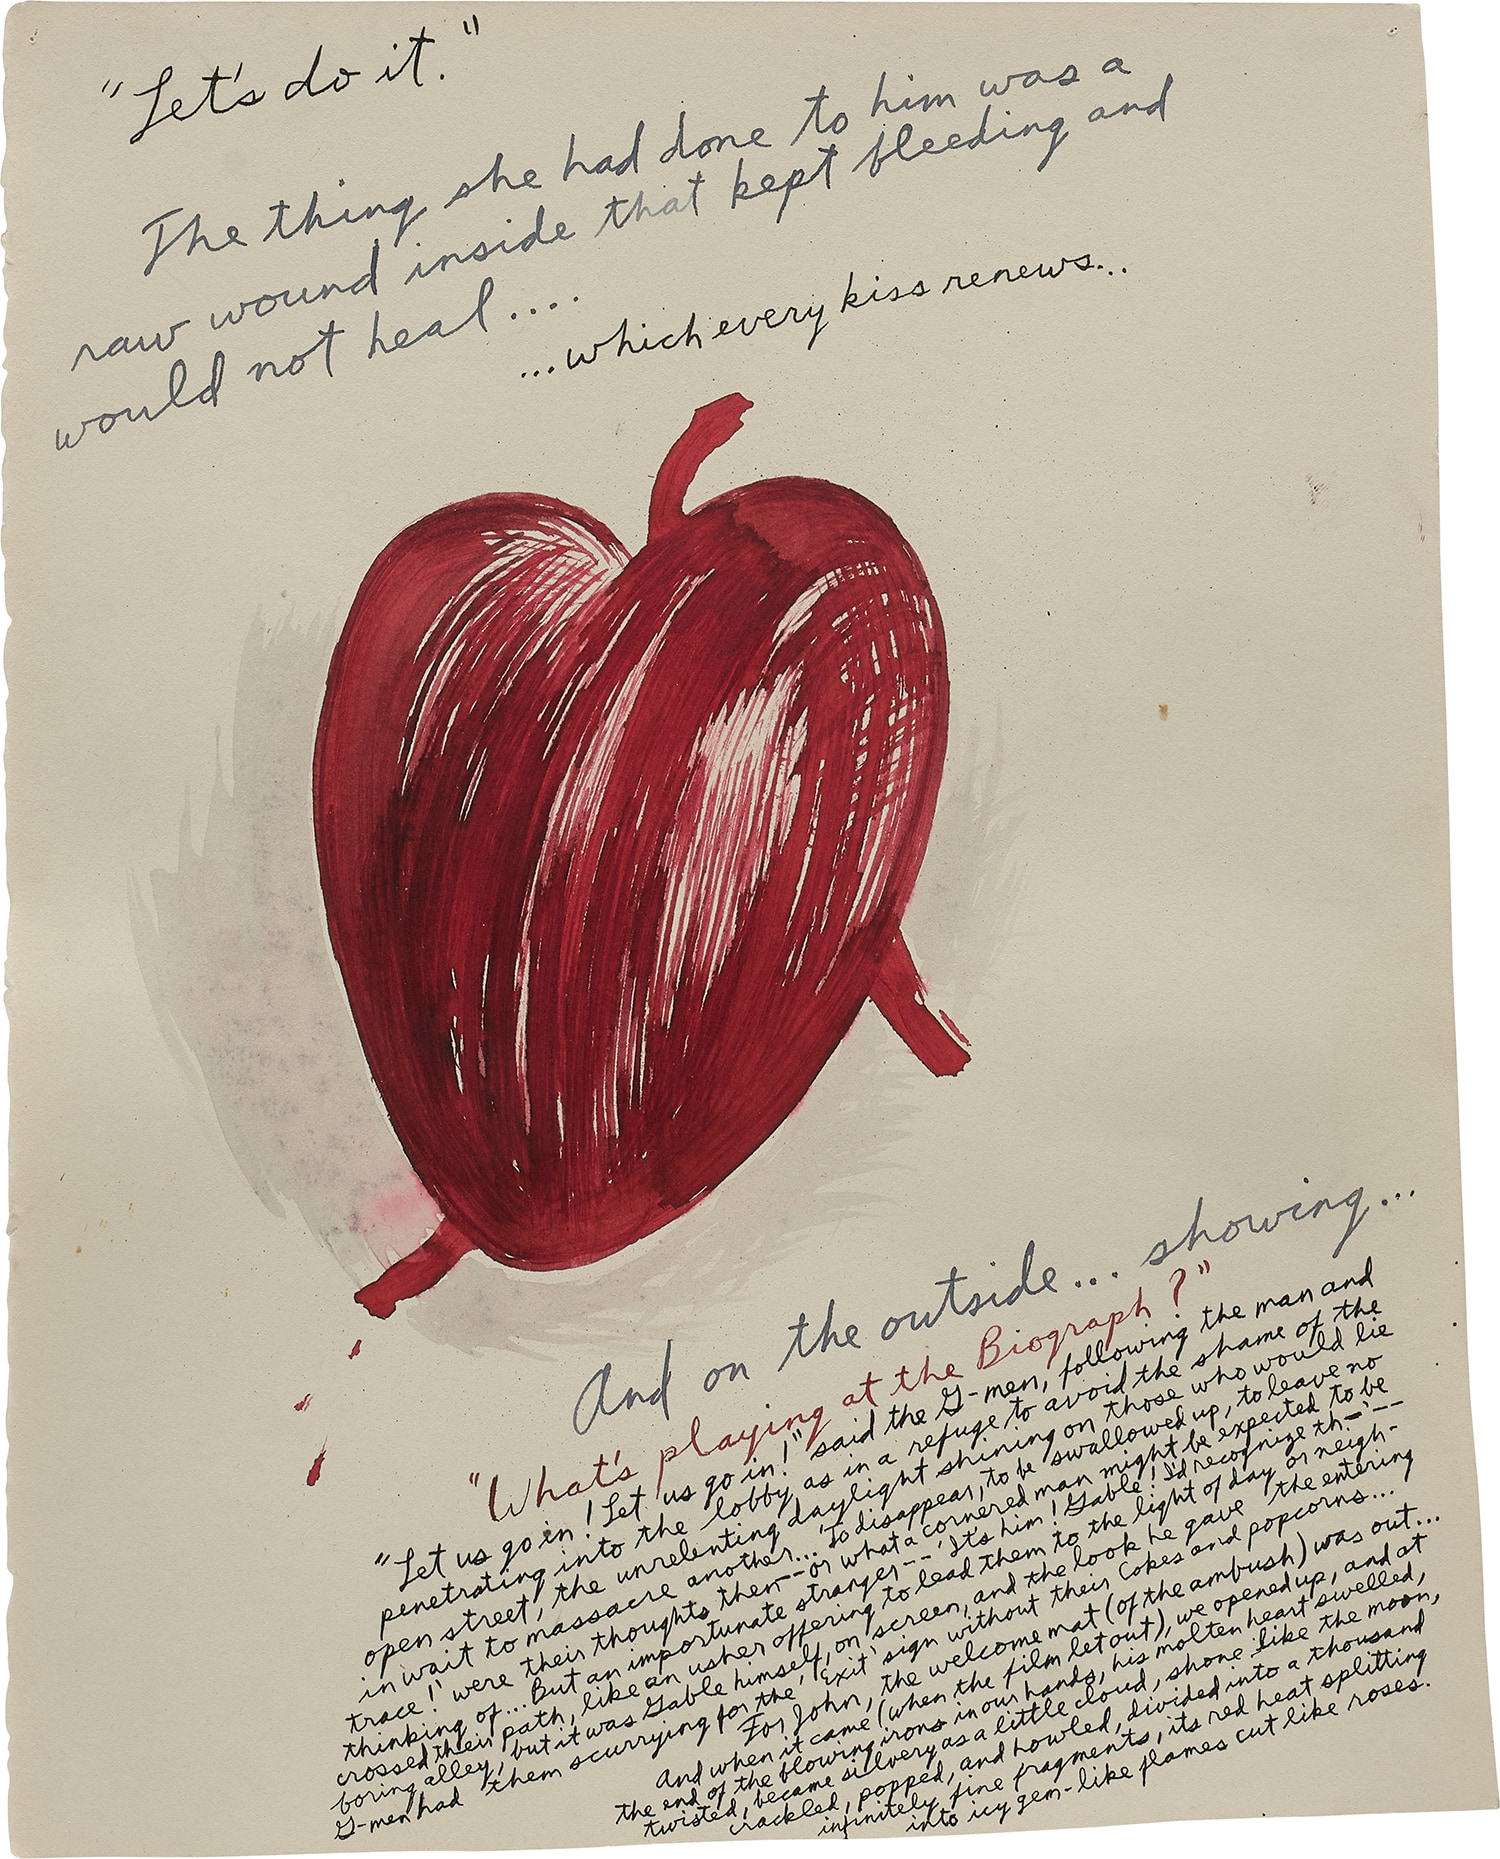 "Let's do it."
The thing she had done to him was a
raw wound inside that kept bleeding and
would not heal....
...which every kiss renews...
And on the outside... showing...
"What's playing at the Biograph?"
"Let us go in! Let us go in!" said the G-men, following the man and
penetrating into the lobby as in a refuge to avoid the shame of the
open street, the unrelenting daylight shining on those who would lie
in wait to massacre another... 'To disappear, to be swallowed up, to leave no
trace!' were their thoughts then--or what a cornered man might be expected to be
thinking of... But an importunate stranger--'It's him! Gable! I'd recognize th--'--
crossed their path, like an usher offering to lead them to the light of day or neigh-
boring alley, but it was Gable himself, on screen, and the look he gave the entering
G-men had them scurrying for the 'Exit' sign without their Cokes and popcorns...
For John, the welcome mat (of the ambush) was out...
And when it came (when the film let out), we opened up, and at
the end of the blowing irons in our hands, his molten heart swelled,
twisted, became silvery as a little cloud, shone like the moon,
crackled, popped, and howled, divided into a thousand
infinitely fine fragments, its red heat splitting
into icy gem-like flames cut like roses.